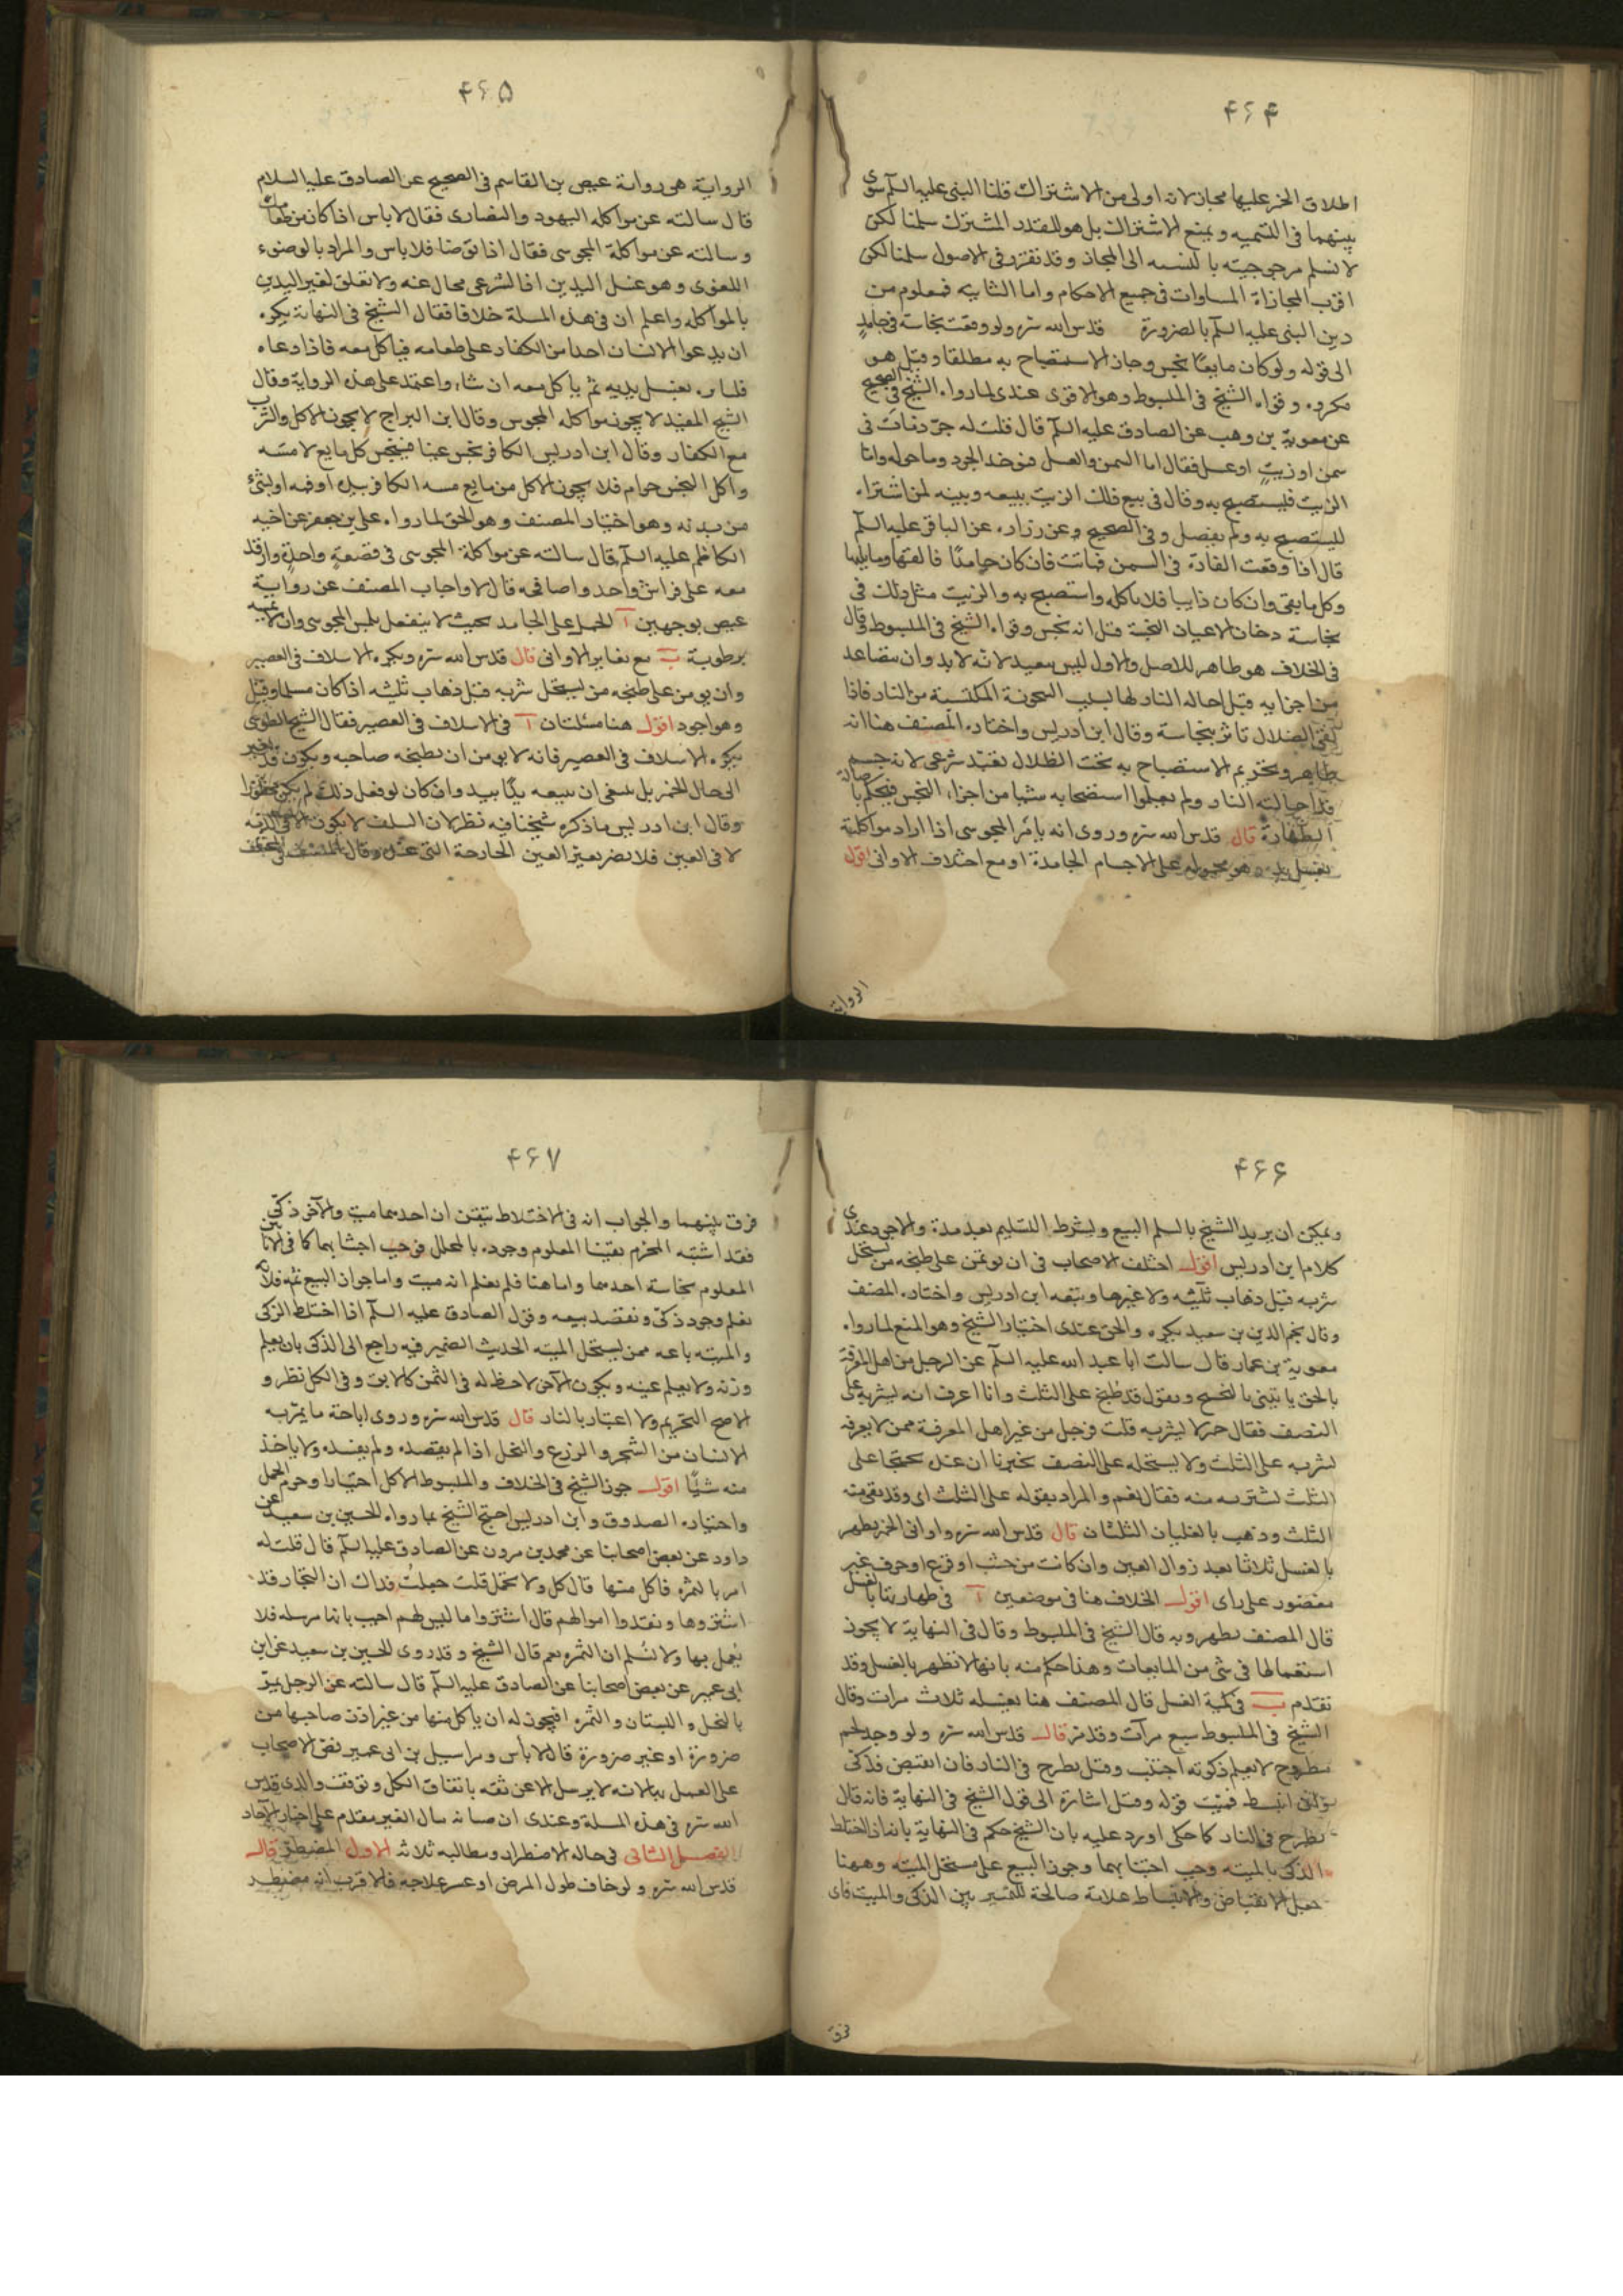 ۴۶۴
اطلاق الخمر عليها مجاز لانه اولى من الاشتراك قلنا النبي عليه السلم سوى
بينهما في التسميه ويمنع الاشتراك بل هو للقدر المشترك سلمنا لكن
لا نسلم مرجوجيته بالنسبه الى المجاز وقد تقرر في الاصول سلمنا لكن
اقرب المجازاة المساوات في جميع الاحكام واما الثانيه فمعلوم من
دين النبي عليه السلم بالضرورة قدس الله سره ولو وقعت نجاسة في جامد
الى قوله ولو كان مايعًا نجس وجاز الاستصباح به مطلقا وقيل هو
مكروه وقواه الشيخ في المبسوط وهو الاقوى عندى لما رواه الشيخ في الصحيح
عن معوية بن وهب عن الصادق عليه السلم قال قلت له جرذ مات في
سمن او زيت او عسل فقال اما السمن والعسل فيوخذ الجرد وما حوله واما
الزيت فليستصبح به وقال في بيع ذلك الزيت يبيعه ويبينه لمن اشتراه
ليستصبح به ولم يفصل وفي الصحيح وعن زراره عن الباقر عليه السلم
قال اذا وقعت الفارة في السمن فماتت فان كان جامدًا فالقها وما يليها
وكل ما بقى وان كان ذايبا فلا تاكله واستصبح به والزيت مثل ذلك في
نجاسة دخان الاعيان النجسة قيل انه نجس وقواه الشيخ في المبسوط وقال
في الخلاف هو طاهر للاصل والاول ليس ببعيد لانه لا بد وان يتصاعد
من اجزايه قبل احاله النار لها بسبب السخونة المكتسبة من النار فاذا
لقى الضلال تاثر بنجاسة وقال ابن ادريس واختاره المصنف هنا انه
طاهر وتحريم الاستصباح به تحت الظلال تعبّد شرعى لانه جسم
قد احالته النار ولم يعلموا استصحابه شيا من اجزاء النجس فيحكم باصالة
الطهارة قال قدس الله سره وروى انه يامر المجوسى اذا اراد مواكلته
بغسل يده وهو محمول على الاجسام الجامدة او مع اختلاف الاوانى اقول
الرواية
۴۶۵
الرواية هى رواية عيص بن القاسم في الصحيح عن الصادق عليه السلام
قال سالته عن مواكله اليهود والنصارى فقال لا باس اذا كان من طعامك
وسالته عن مواكلة المجوسى فقال اذا توضا فلا باس والمراد بالوضوء
اللغوى وهو غسل اليدين اذ الشرعى محال عنه ولا تعلق لغير اليدين
بالمواكله واعلم ان في هذه المسلة خلافا فقال الشيخ في النهاية يكره
ان يدعوا الانسان احدا من الكفار على طعامه فياكل معه فاذا دعاه
فليامره بغسل يديه ثم ياكل معه ان شاء واعتمد على هذه الرواية وقال
الشيخ المفيد لا يجوز مواكله المجوس وقال ابن البراج لا يجوز الاكل والشرب
مع الكفار وقال ابن ادريس الكافر نجس عينا فينجس كل مايع لامسه
واكل النجس حرام فلا يجوز الاكل من مايع مسه الكافر بيده او فمه او بشئ
من بدنه وهو اختيار المصنف وهو الحق لما رواه على بن جعفر عن اخيه
الكاظم عليه السلم قال سالته عن مواكلة المجوسى في قصعة واحدة وارقد
معه على فراش واحد واصافحه قال لا واجاب المصنف عن رواية
عيص بوجهين آ الحمل على الجامد بحيث لا ينفعل بلمس المجوسى وان لا يمسه
برطوبة ب مع تغاير الاوانى قال قدس الله سره ويكره الاسلاف في العصير
وان يومن على طبخه من يستحل شربه قبل ذهاب ثلثيه اذا كان مسلما وقيل
وهو اجود اقول هنا مسئلتان آ في الاسلاف في العصير فقال الشيخ الطوسى
يكره الاسلاف في العصير فانه لا يومن ان يطلبه صاحبه ويكون قد تغير
الى حال الخمر بل ينبغى ان يبيعه يدًا بيد وان كان لو فعل ذلك لم يكن محظورا
وقال ابن ادريس ما ذكره شيخنا فيه نظر لان السلف لا يكون الا في الذمه
لا في العين فلا يضر تغير العين الخارجة التى عنده وقال المصنف في المختلف
۴۶۶
ويمكن ان يريد الشيخ بالسلم البيع ويشرط التسليم بعد مدة والاجود عندى
كلام ابن ادريس اقول اختلف الاصحاب في ان يوتمن على طبخه من يستحل
شربه قبل ذهاب ثلثيه ولا غيرها وتبعه ابن ادريس واختاره المصنف
وقال نجم الدين بن سعيد يكره والحق عندى اختيار الشيخ وهو المنع لما رواه
معوية بن عمار قال سالت ابا عبد الله عليه السلم عن الرجل من اهل المعرفة
بالحق ياتينى بالبختج ويقول قد طبخ على الثلث وانا اعرف انه يشربه على
النصف فقال خمر لا يشربه قلت فرجل من غير اهل المعرفة ممن لا يعرفه
يشربه على الثلث ولا يستحله على النصف يخبرنا ان عنده بختجا على
الثلث نشتريه منه فقال نعم والمراد بقوله على الثلث اى وقد بقى منه
الثلث وذهب بالغليان الثلثان قال قدس الله سره واوانى الخمر يطهر
بالغسل ثلاثا بعد زوال العين وان كانت من خشب او قرع او خزف غير
مغضور على راى اقول الخلاف هنا في موضعين آ في طهارتها بالغسل
قال المصنف يطهر وبه قال الشيخ في المبسوط وقال في النهاية لا يجوز
استعمالها في شى من المايعات وهذا حكم منه بانها لا تطهر بالغسل وقد
تقدم ب في كمية الغسل قال المصنف هنا بغسله ثلاث مرات وقال
الشيخ في المبسوط سبع مرآت وقد مر قال قدس الله سره ولو وجد لحم
مطروح لا يعلم ذكوته اجتنب وقيل يطرح في النار فان انقبض فذكىّ
وان انبسط فميّت قوله وقيل اشارة الى قول الشيخ في النهاية فانه قال
يطرح في النار كما حكى اورد عليه بان الشيخ حكم في النهاية بانه اذا اختلط
الذكى بالميته وجب اجتنابهما وجوز البيع على مستحل الميته وههنا
جعل الانقباض والانبساط علامة صالحة للتمييز بين الذكى والميت فاى
فرق
۴۶۷
فرق بينهما والجواب انه في الاختلاط تيقن ان احدهما ميت والآخر ذكىّ
فقد اشتبه المحرم يقينا المعلوم وجوده بالمحلل فوجب اجتنابهما كما في الانائين
المعلوم نجاسة احدهما واما هنا فلم يعلم انه ميت واما جواز البيع ثم فلانه
يعلم وجود ذكىّ ونقصد بيعه وقول الصادق عليه السلم اذا اختلط الزكى
والميته باعه ممن يستحل الميته الحديث الضمير فيه راجع الى الذكى بان يعلم
وزنه ولا يعلم عينه ويكون الآخر لا حظ له في الثمن كالابق وفي الكل نظر و
الاصح التحريم ولا اعتبار بالنار قال قدس الله سره وروى اباحة ما يمرّ به
الانسان من الشجر والزرع والنخل اذا لم يقصده ولم يفسده ولا ياخذ
منه شيًا اقول جوز الشيخ في الخلاف والمبسوط الاكل اختيارا وحرم الحمل
واختياره الصدوق وابن ادريس احتج الشيخ بما رواه الحسين بن سعيد عن
داود عن بعض اصحابنا عن محمد بن مرون عن الصادق عليه السلم قال قلت له
امر بالثمره فاكل منها قال كل ولا تحمل قلت جعلتُ فداك ان التجار قد
اشتروها ونقدوا اموالهم قال اشتروا ما ليس لهم اجيب بانها مرسله فلا
يُعمل بها ولا نُسلم ان الثمره نعم قال الشيخ وقد روى الحسين بن سعيد عن ابن
ابى عمير عن بعض اصحابنا عن الصادق عليه السلم قال سالته عن الرجل يمرّ
بالنخل والبستان والثمره افيجوز له ان ياكل منها من غير اذن صاحبها من
ضرورة او غير ضرورة قال لا باس ومراسيل بن ابى عمير نص الاصحاب
على العمل بها لانه لا يرسل الا عن ثقه باتفاق الكل وتوقف والدى قدس
الله سره في هذه المسلة وعندى ان صيانه مال الغير مقدم على اخبار الآحاد
الفصل الثانى في حاله الاضطرار ومطالبه ثلاثه الاول المضطر قال
قدس الله سره ولو خاف طول المرض او عسر علاجه فالاقرب انه مضطر